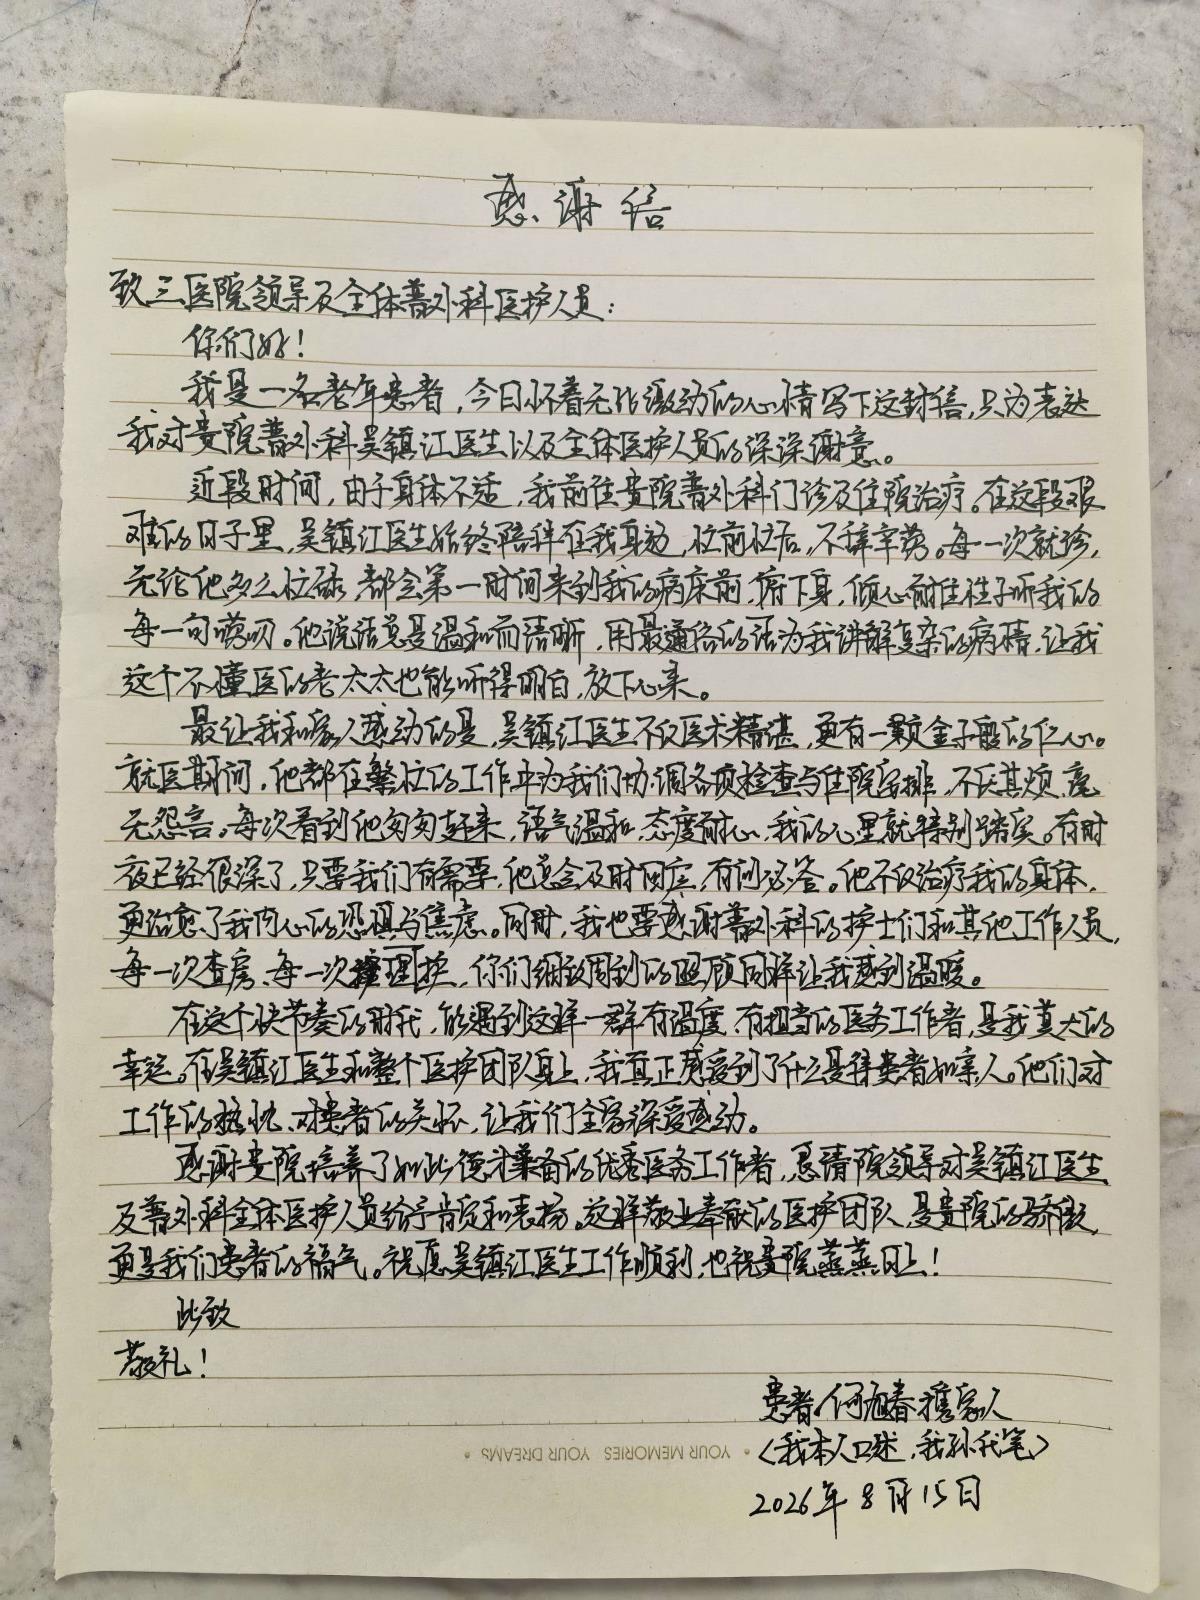 感谢信
致三医院领导及全体普外科医护人员：
你们好！
我是一名老年患者，今日怀着无比激动的心情写下这封信，只为表达
我对贵院普外科吴镇江医生以及全体医护人员的深深谢意。
近段时间，由于身体不适，我前往贵院普外科门诊及住院治疗。在这段艰
难的日子里，吴镇江医生始终陪伴在我身边，忙前忙后，不辞辛劳。每一次就诊，
无论他多么忙碌，都会第一时间来到我的病床前，俯下身，倾心耐住性子听我的
每一句唠叨。他说话总是温和而清晰，用最通俗的话为我讲解复杂的病情，让我
这个不懂医的老太太也能听得明白，放下心来。
最让我和家人感动的是，吴镇江医生不仅医术精湛，更有一颗金子般的仁心。
就医期间，他都在繁忙的工作中为我们协调各项检查与住院安排，不厌其烦，毫
无怨言。每次看到他匆匆赶来，语气温和，态度耐心，我的心里就特别踏实。有时
夜已经很深了，只要我们有需要，他总会及时回应，有问必答。他不仅治疗我的身体，
更治愈了我内心的恐惧与焦虑。同时，我也要感谢普外科的护士们和其他工作人员，
每一次查房、每一次护理，你们细致周到的照顾同样让我感到温暖。
在这个快节奏的时代，能遇到这样一群有温度、有担当的医务工作者，是我莫大的
幸运。在吴镇江医生和整个医护团队身上，我真正感受到了什么是待患者如亲人。他们对
工作的热忱、对患者的关怀，让我们全家深受感动。
感谢贵院培养了如此德才兼备的优秀医务工作者，恳请院领导对吴镇江医生
及普外科全体医护人员给予肯定和表扬。这样敬业奉献的医护团队，是贵院的骄傲，
更是我们患者的福气。祝愿吴镇江医生工作顺利，也祝贵院蒸蒸日上！
此致
敬礼！
患者：何旭春携家人
（我本人口述，我孙代笔）
YOUR MEMORIES YOUR DREAMS
2026年8月15日